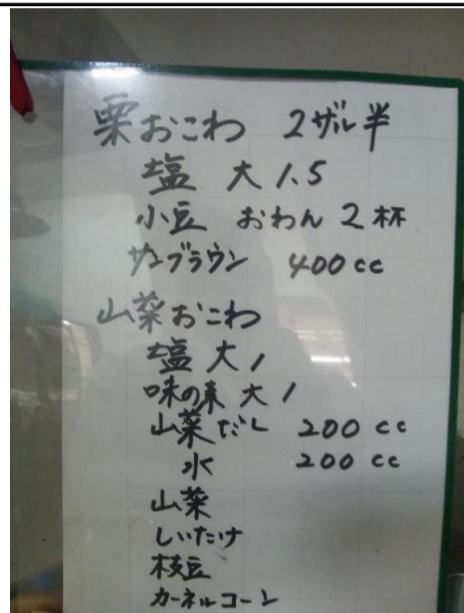 栗おこわ 2ザル半
塩 大1.5
小豆 おわん2杯
サンブラウン 400cc
山菜おこわ
塩 大1
味の素 大1
山菜だし 200cc
水 200cc
山菜
しいたけ
枝豆
カーネルコーン